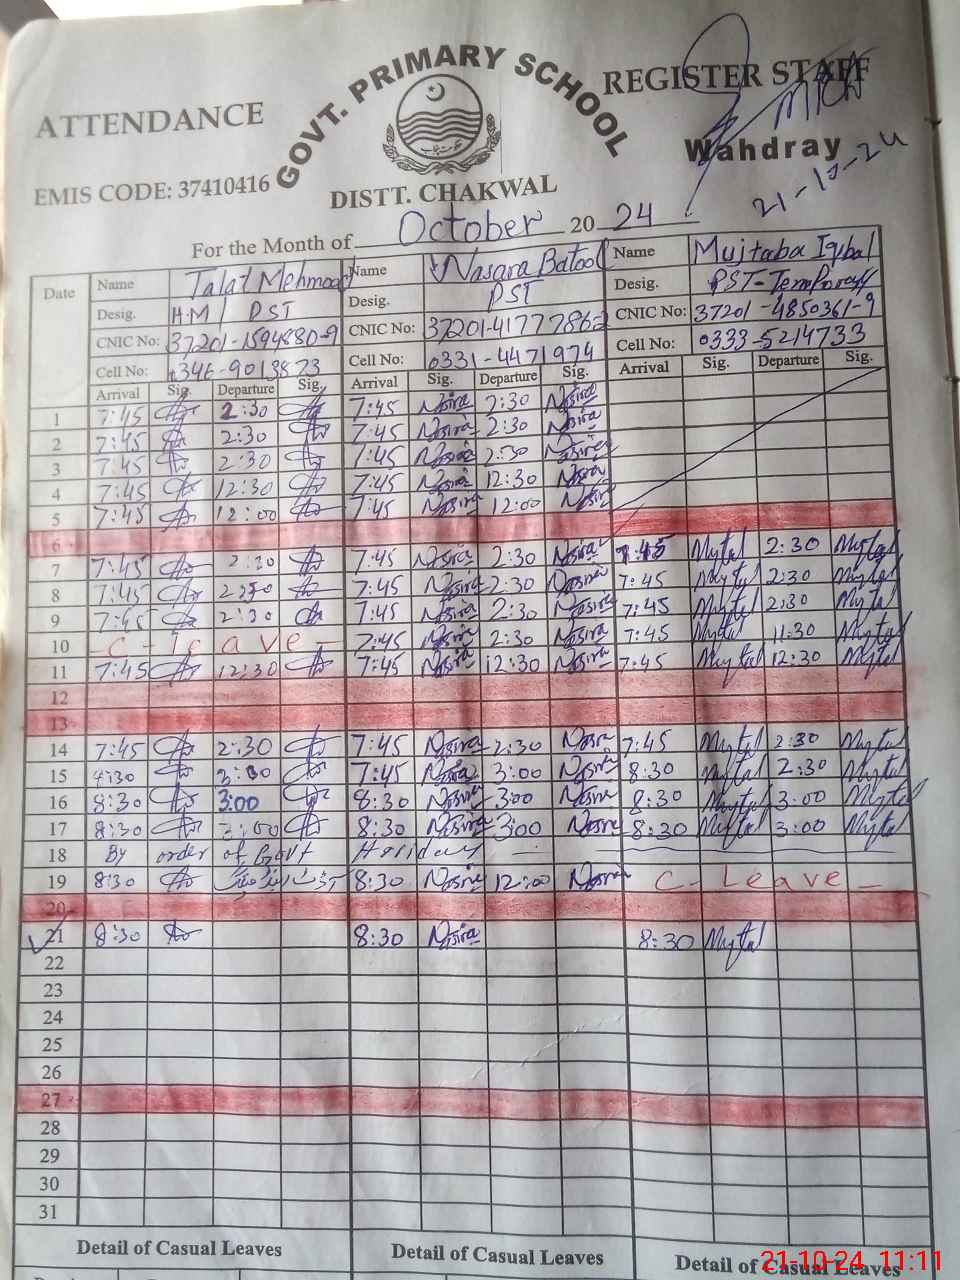 ATTENDANCE
GOVT. PRIMARY SCHOOL
REGISTER STAFF
Wahdray
EMIS CODE: 37410416
DISTT. CHAKWAL
21-10-24
For the Month of October 20 24
Date Name Talat Mehmood Name Nasara Batool Name Mujtaba Iqbal
Desig. H.M / PST Desig. PST Desig. PST-Temporary
CNIC No: 37201-1594880-9 CNIC No: 37201-4177786-2 CNIC No: 37201-4850361-9
Cell No: 0346-9013823 Cell No: 0331-4471974 Cell No: 0333-5214733
Arrival Sig. Departure Sig. Arrival Sig. Departure Sig. Arrival Sig. Departure Sig.
1 7:45 2:30 7:45 Nasira 2:30 Nasira
2 7:45 2:30 7:45 Nasira 2:30 Nasira
3 7:45 2:30 7:45 Nasira 2:30 Nasira
4 7:45 12:30 7:45 Nasira 12:30 Nasira
5 7:45 12:00 7:45 Nasira 12:00 Nasira
6
7 7:45 2:30 7:45 Nasira 2:30 Nasira 7:45 2:30
8 7:45 2:30 7:45 Nasira 2:30 Nasira 7:45 2:30
9 7:45 2:30 7:45 Nasira 2:30 Nasira 7:45 2:30
10 C - leave - 7:45 Nasira 2:30 Nasira 7:45 11:30
11 7:45 12:30 7:45 Nasira 12:30 Nasira 7:45 12:30
12
13
14 7:45 2:30 7:45 Nasira 2:30 Nasira 7:45 2:30
15 4:30 3:00 7:45 Nasira 3:00 Nasira 8:30 2:30
16 8:30 3:00 8:30 Nasira 3:00 Nasira 8:30 3:00
17 8:30 3:00 8:30 Nasira 3:00 Nasira 8:30 3:00
18 By order of Govt Holiday
19 8:30 8:30 Nasira 12:00 Nasira C - Leave -
20
21 8:30 8:30 Nasira 8:30
22
23
24
25
26
27
28
29
30
31
Detail of Casual Leaves Detail of Casual Leaves Detail of Casual Leaves
21-10-24 11:11